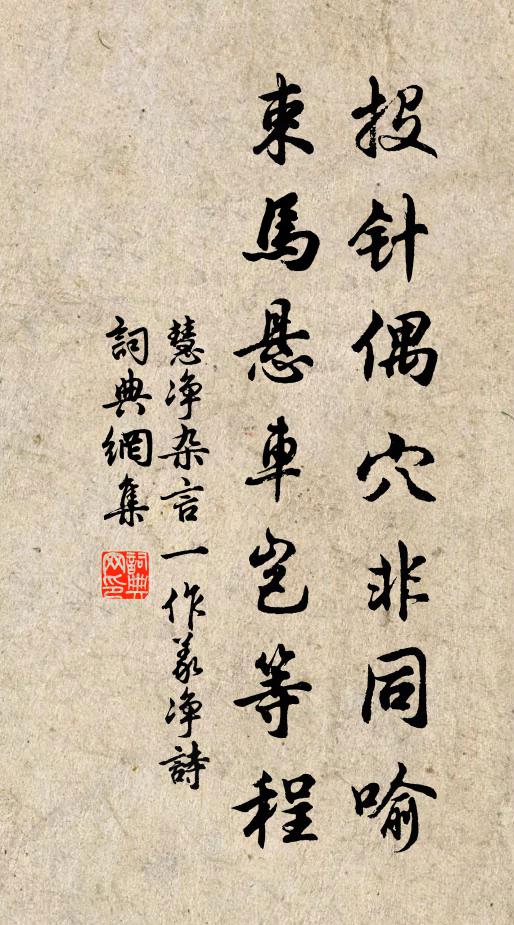 投针偶穴非同喻
束馬悬車岂等程
慧净杂言一作義净詩
詞典網集
詞典网印